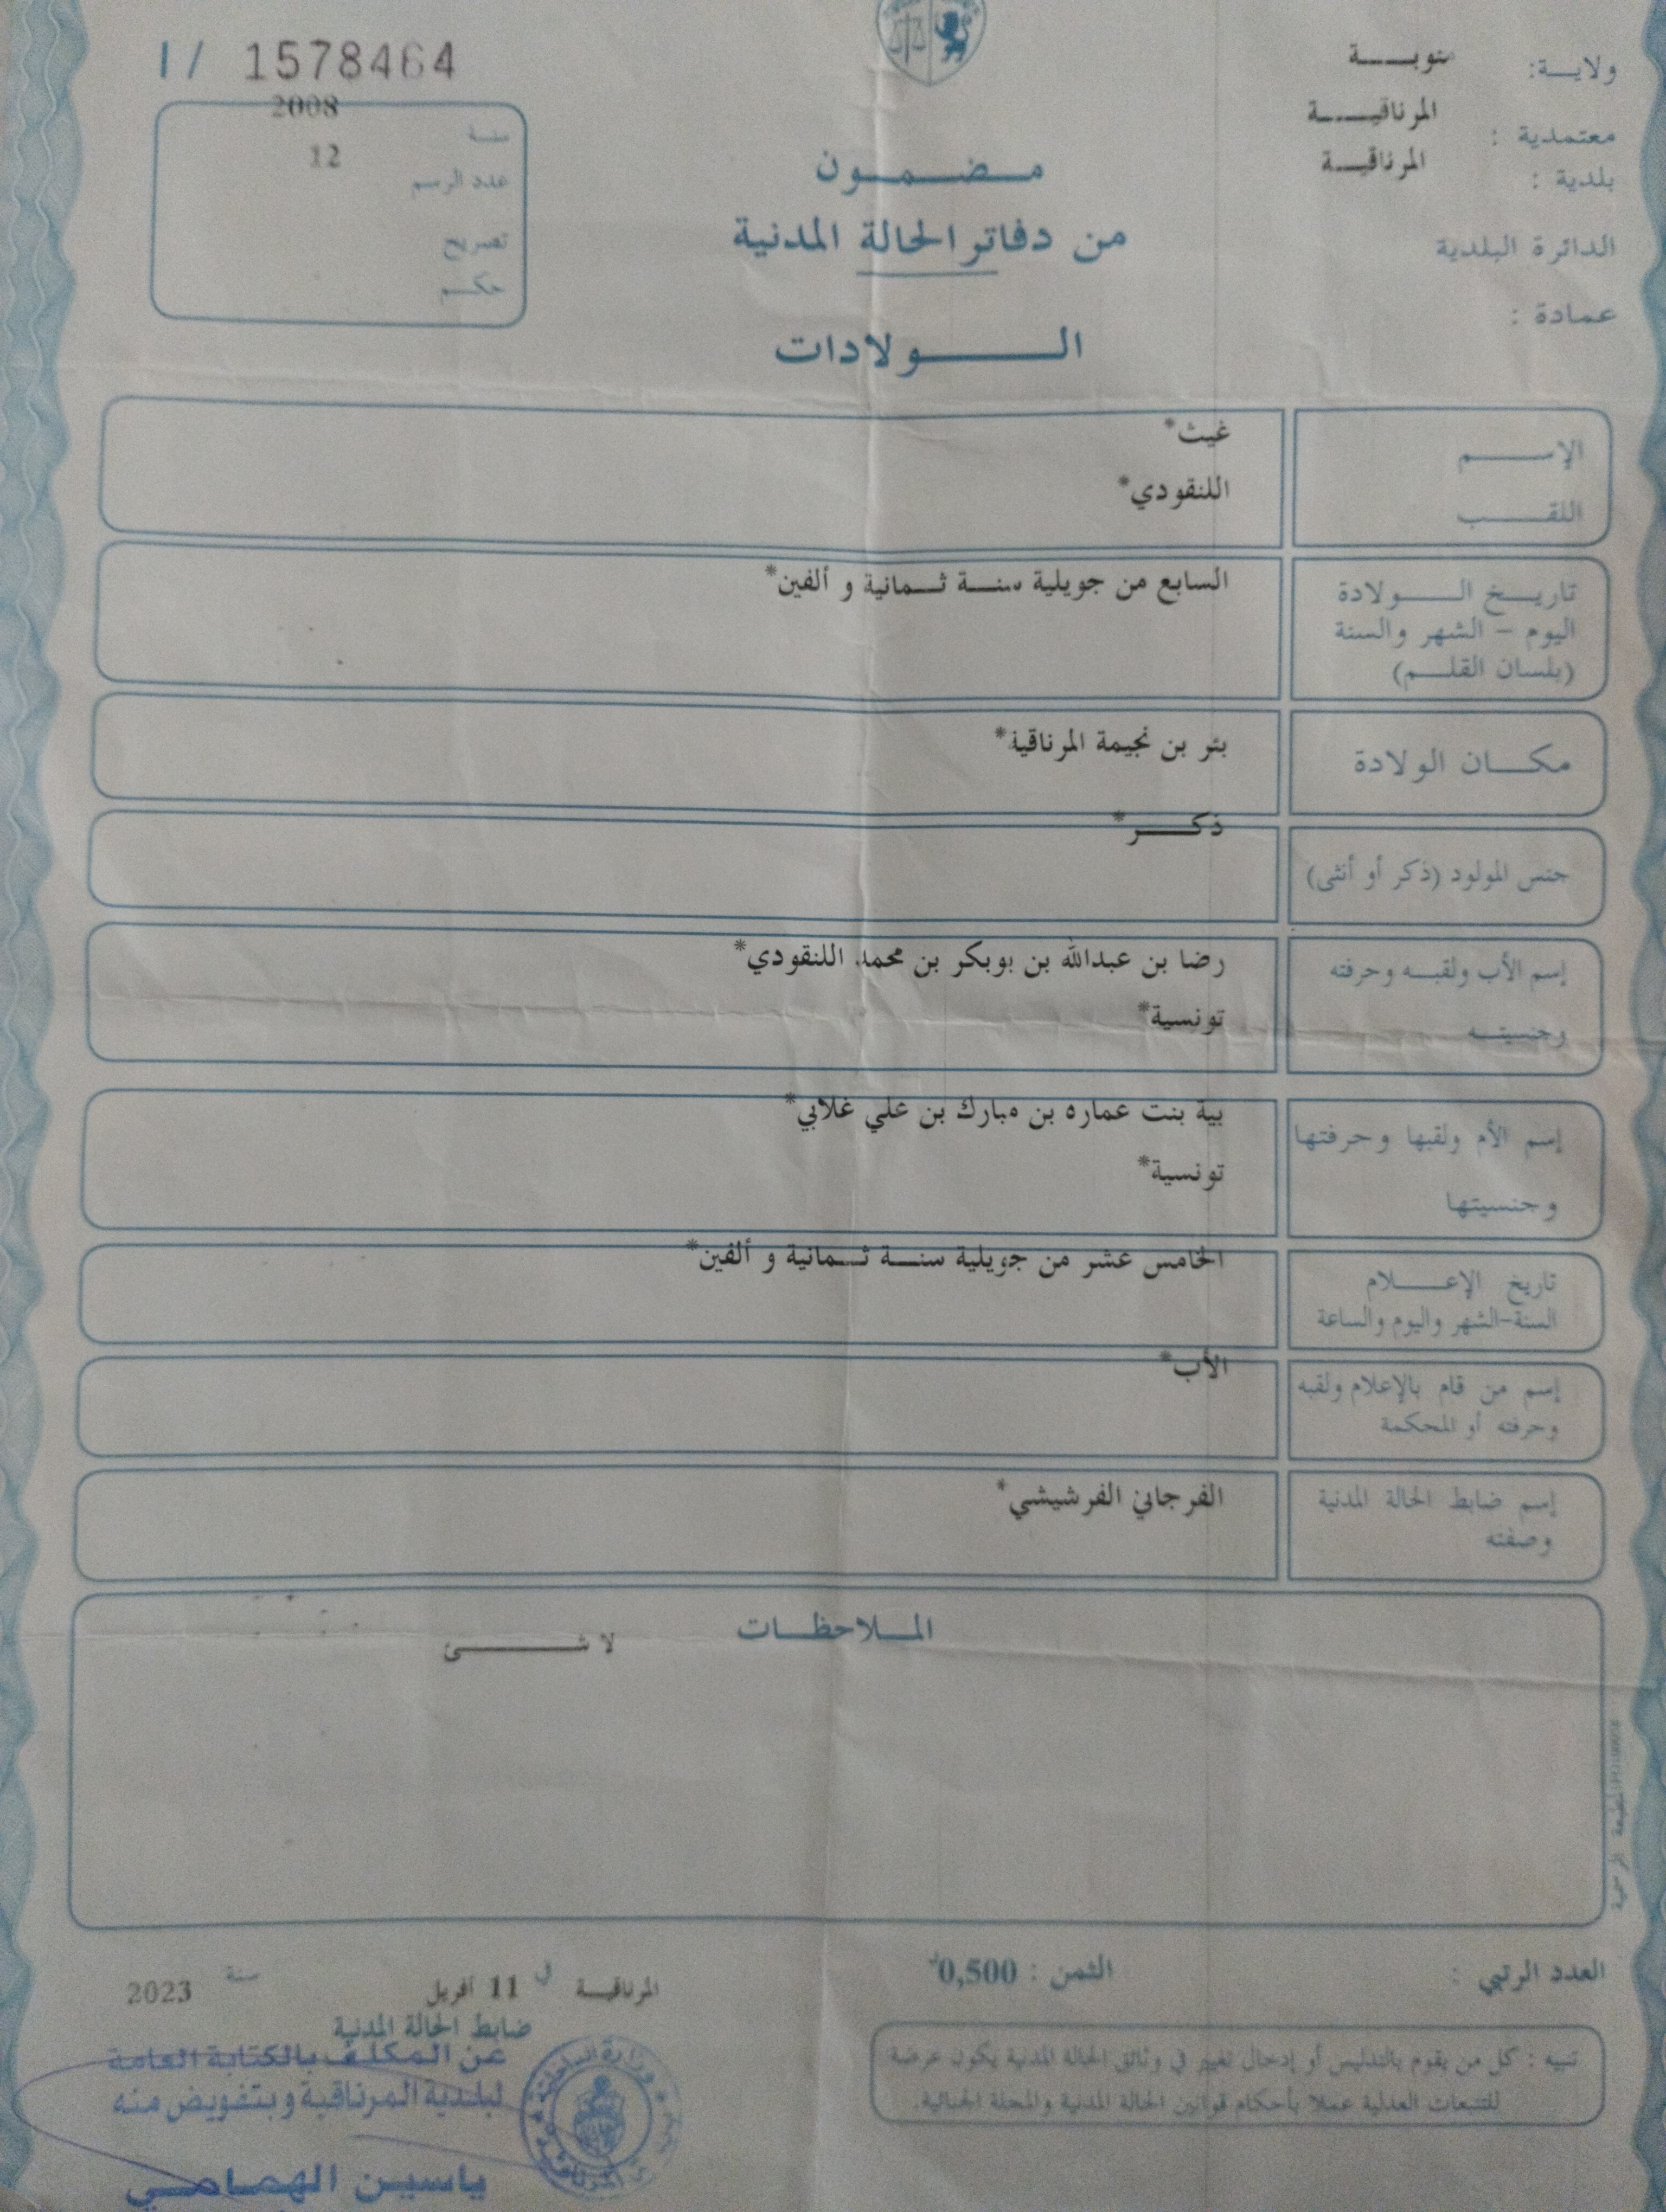 ولاية: منوبة
معتمدية : المرناقية
بلدية : المرناقية
الدائرة البلدية
عمادة :
مضمون
من دفاتر الحالة المدنية
الولادات
I / 1578464
سنة 2008
عدد الرسم 12
تصريح
حكم
الإسم غيث*
اللقب اللنقودي*
تاريخ الولادة السابع من جويلية سنة ثمانية و ألفين*
اليوم - الشهر والسنة
(بلسان القلم)
مكان الولادة بئر بن نجيمة المرناقية*
جنس المولود (ذكر أو أنثى) ذكر*
إسم الأب ولقبه وحرفته رضا بن عبدالله بن بوبكر بن محمد اللنقودي*
وجنسيته تونسية*
إسم الأم ولقبها وحرفتها بية بنت عماره بن مبارك بن علي غلابي*
وجنسيتها تونسية*
تاريخ الإعلام الخامس عشر من جويلية سنة ثمانية و ألفين*
السنة-الشهر واليوم والساعة
إسم من قام بالإعلام ولقبه الأب*
وحرفته أو المحكمة
إسم ضابط الحالة المدنية الفرجاني الفرشيشي*
وصفته
الملاحظات
لا شئ
المطبعة الرسمية
العدد الرتبي :
الثمن : 0,500د
المرناقية في 11 أفريل سنة 2023
ضابط الحالة المدنية
عن المكلف بالكتابة العامة
لبلدية المرناقية وبتفويض منه
ياسين الهمامي
تنبيه : كل من يقوم بالتدليس أو إدخال تغيير في وثائق الحالة المدنية يكون عرضة
للتتبعات العدلية عملا بأحكام قوانين الحالة المدنية والمجلة الجنائية.